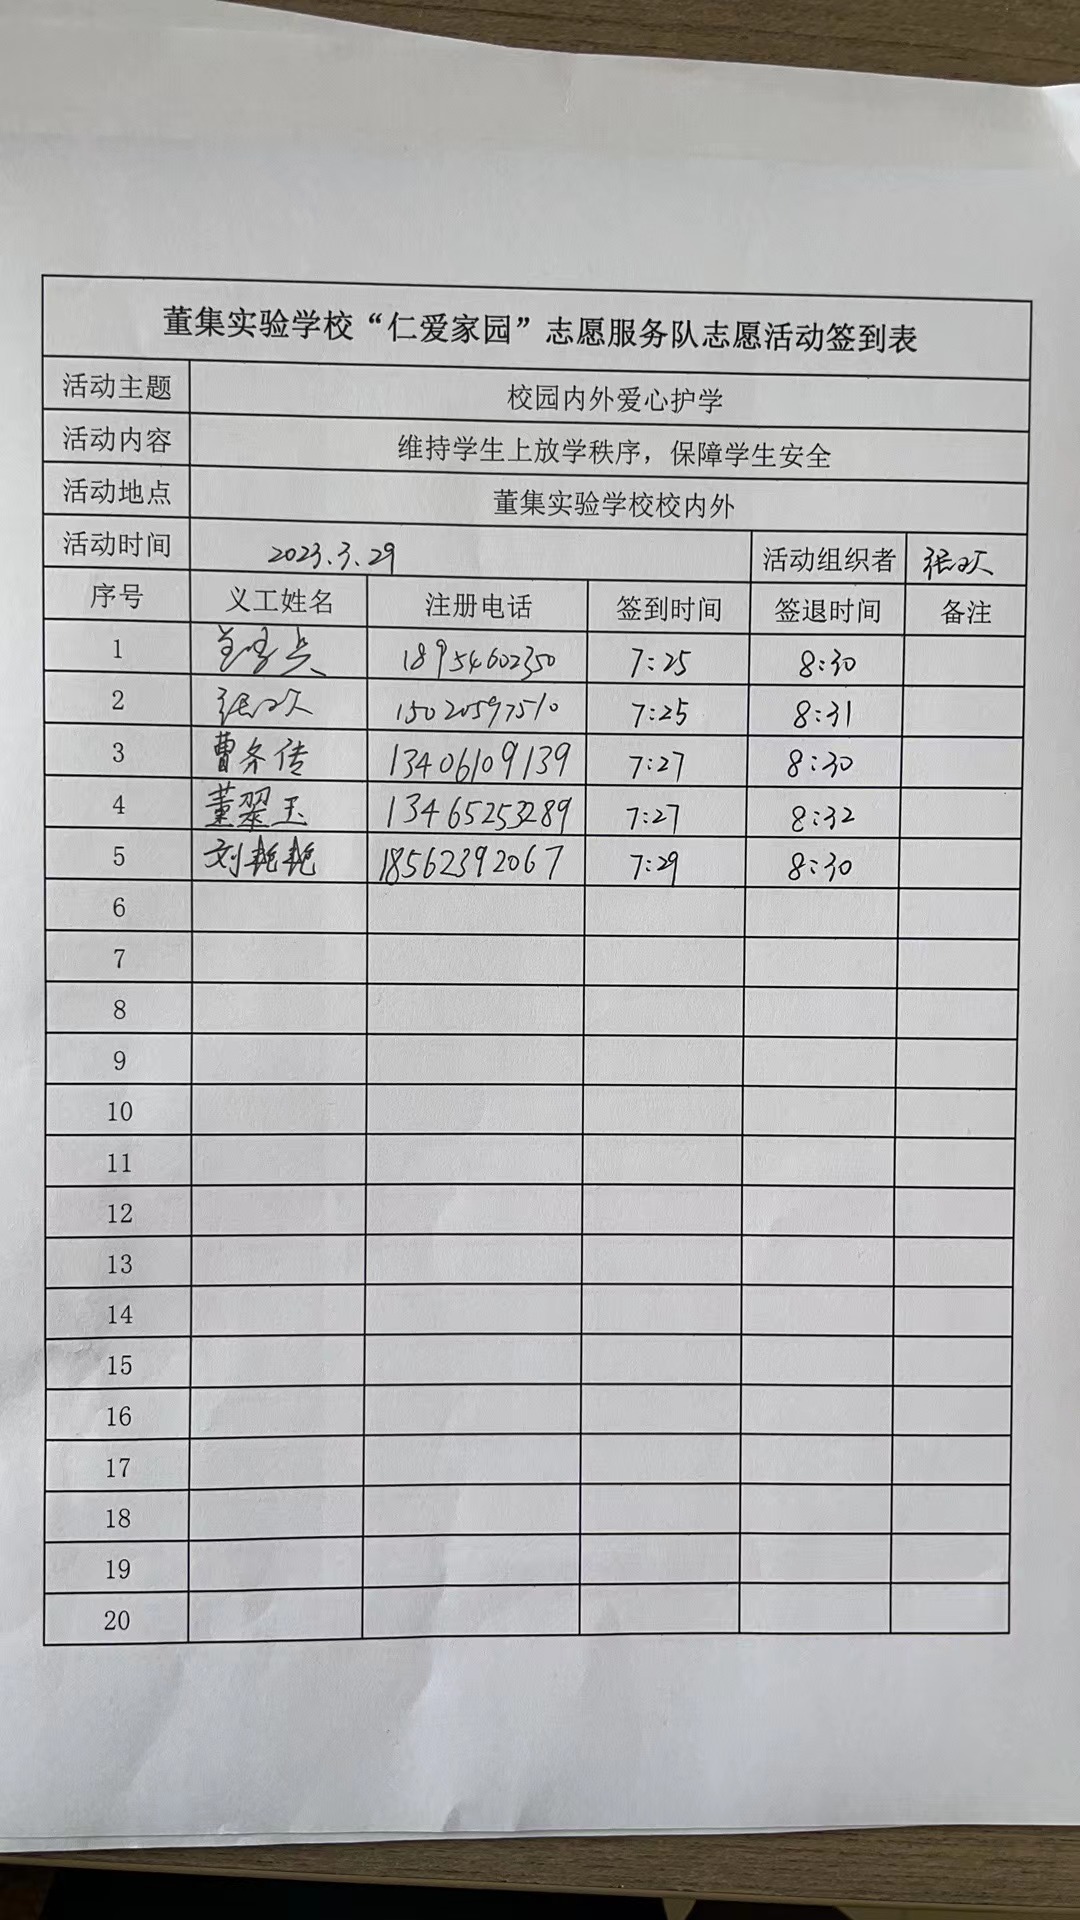 董集实验学校“仁爱家园”志愿服务队志愿活动签到表
活动主题 校园内外爱心护学
活动内容 维持学生上放学秩序，保障学生安全
活动地点 董集实验学校校内外
活动时间 2023.3.29 活动组织者 张欢
序号 义工姓名 注册电话 签到时间 签退时间 备注
1 18954602350 7:25 8:30
2 张欢 15020597510 7:25 8:31
3 曹务传 13406109139 7:27 8:30
4 董翠玉 13465253289 7:27 8:32
5 刘艳艳 18562392067 7:29 8:30
6
7
8
9
10
11
12
13
14
15
16
17
18
19
20